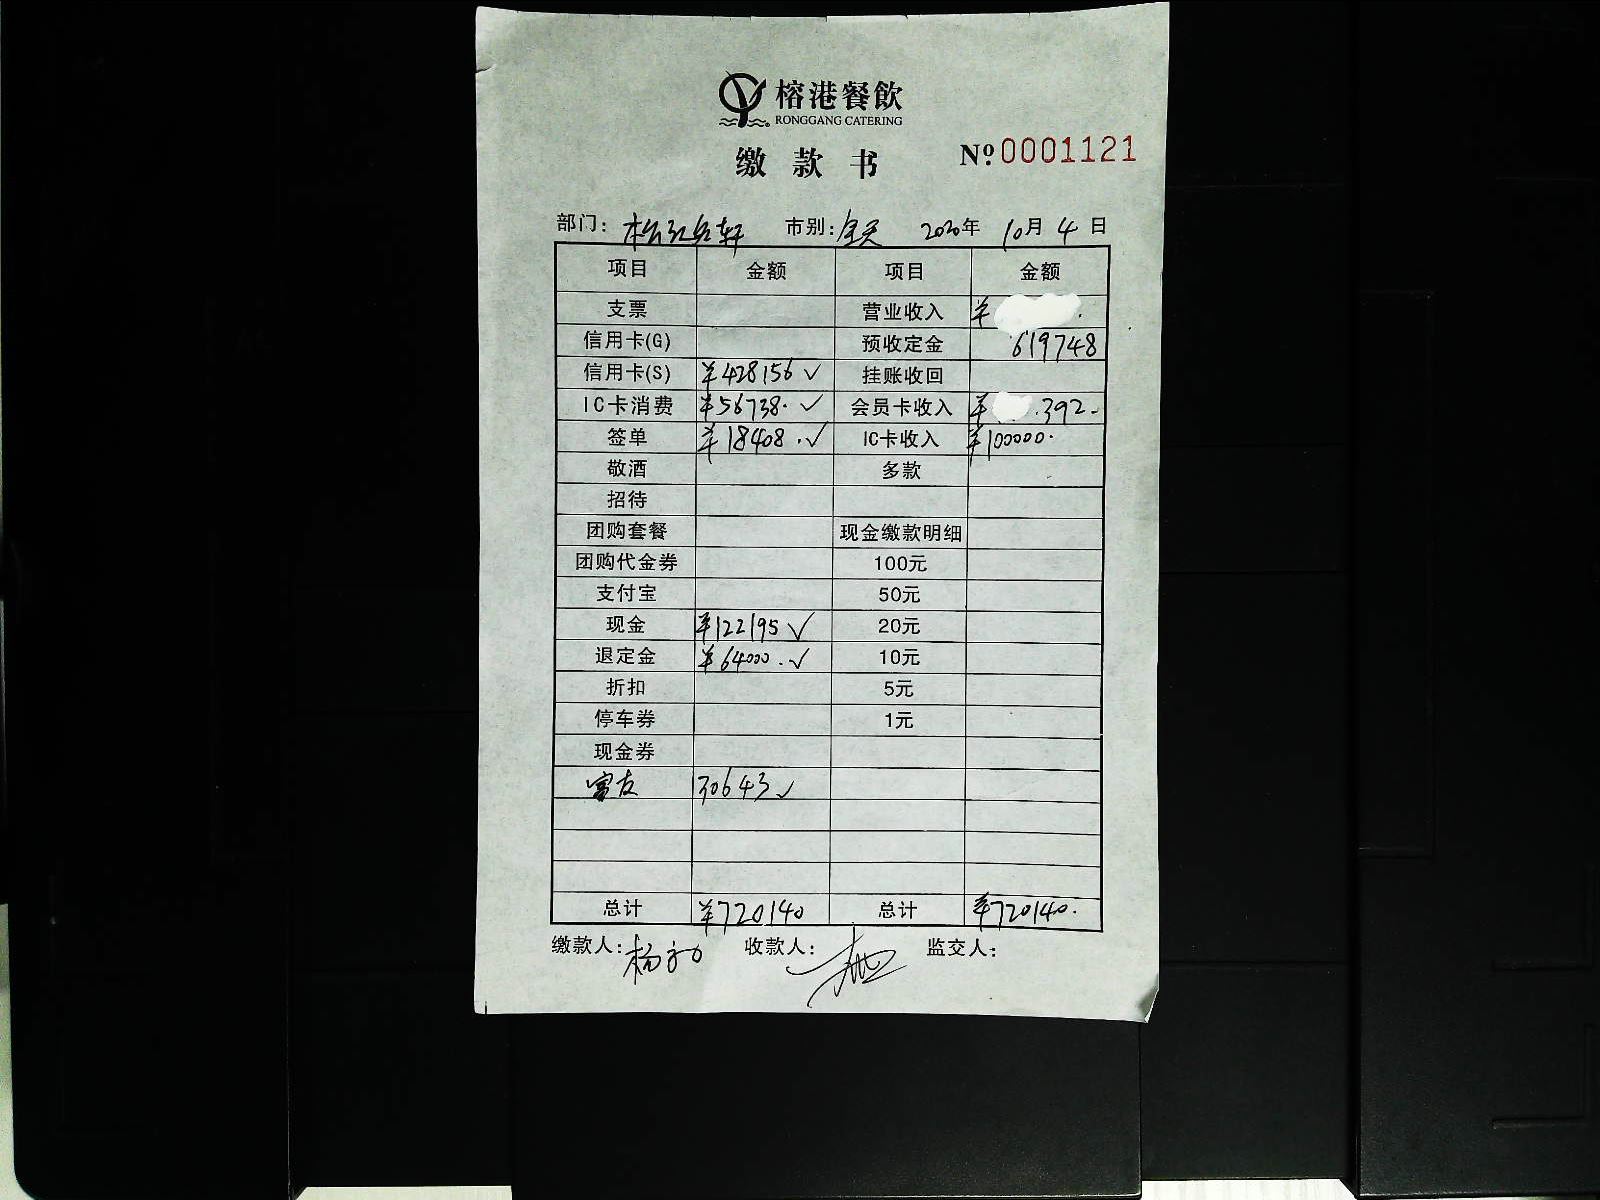 榕港餐飲
RONGGANG CATERING
缴款书 Nº 0001121
部门: 市别: 全天 2020年 10月 4日
项目 金额 项目 金额
支票 营业收入 ¥
信用卡(G) 预收定金 619748
信用卡(S) ¥428156 ✓ 挂账收回
IC卡消费 ¥56738. ✓ 会员卡收入 ¥ .392-
签单 ¥18408. ✓ IC卡收入 ¥100000.
敬酒 多款
招待
团购套餐 现金缴款明细
团购代金券 100元
支付宝 50元
现金 ¥122195 ✓ 20元
退定金 ¥64000. ✓ 10元
折扣 5元
停车券 1元
现金券
富友 30643 ✓
总计 ¥720140 总计 ¥720140.
缴款人: 杨 收款人: 监交人: